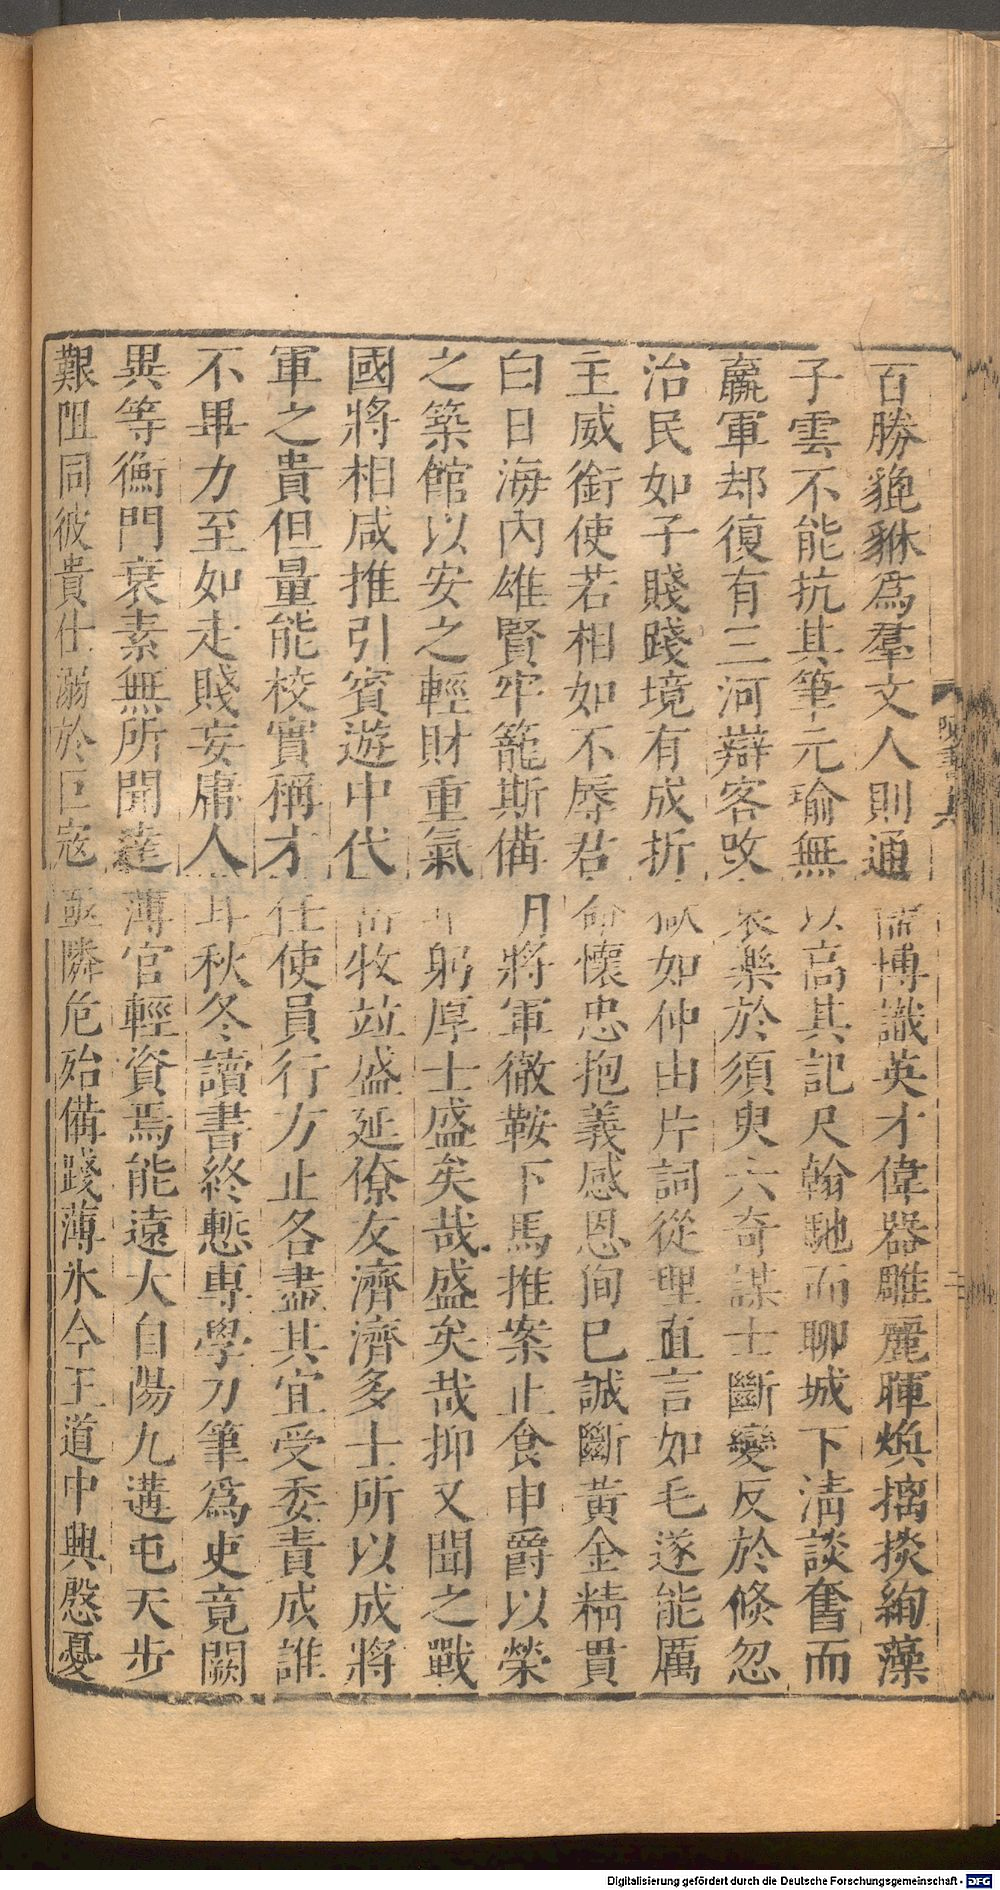 百勝貔貅為羣文人則通儒博識英才偉器雕麗暉煥摛掞絢藻
子雲不能抗其筆元瑜無以高其記尺翰馳而聊城下清談奮而
羸軍却復有三河辯客改哀樂於須臾六奇謀士斷變反於倏忽
治民如子賤踐境有成折獄如仲由片詞從理直言如毛遂能厲
主威銜使若相如不辱君命懷忠抱義感恩徇已誠斷黃金精貫
白日海內雄賢牢籠斯備明將軍徹鞍下馬推案止食申爵以榮
之築館以安之輕財重氣卑躬厚士盛矣哉盛矣哉抑又聞之戰
國將相咸推引賓遊中代岳牧竝盛延僚友濟濟多士所以成將
軍之貴但量能校實稱才任使員行方止各盡其宜受委責成誰
不畢力至如走賤妄庸人耳秋冬讀書終慙專學刀筆為吏竟闕
異等衡門衰素無所聞達薄官輕資焉能遠大自陽九遘屯天步
艱阻同彼貴仕溺於巨寇亟隣危殆備踐薄氷今王道中興慇憂
陳書
Digitalisierung gefördert durch die Deutsche Forschungsgemeinschaft - DFG